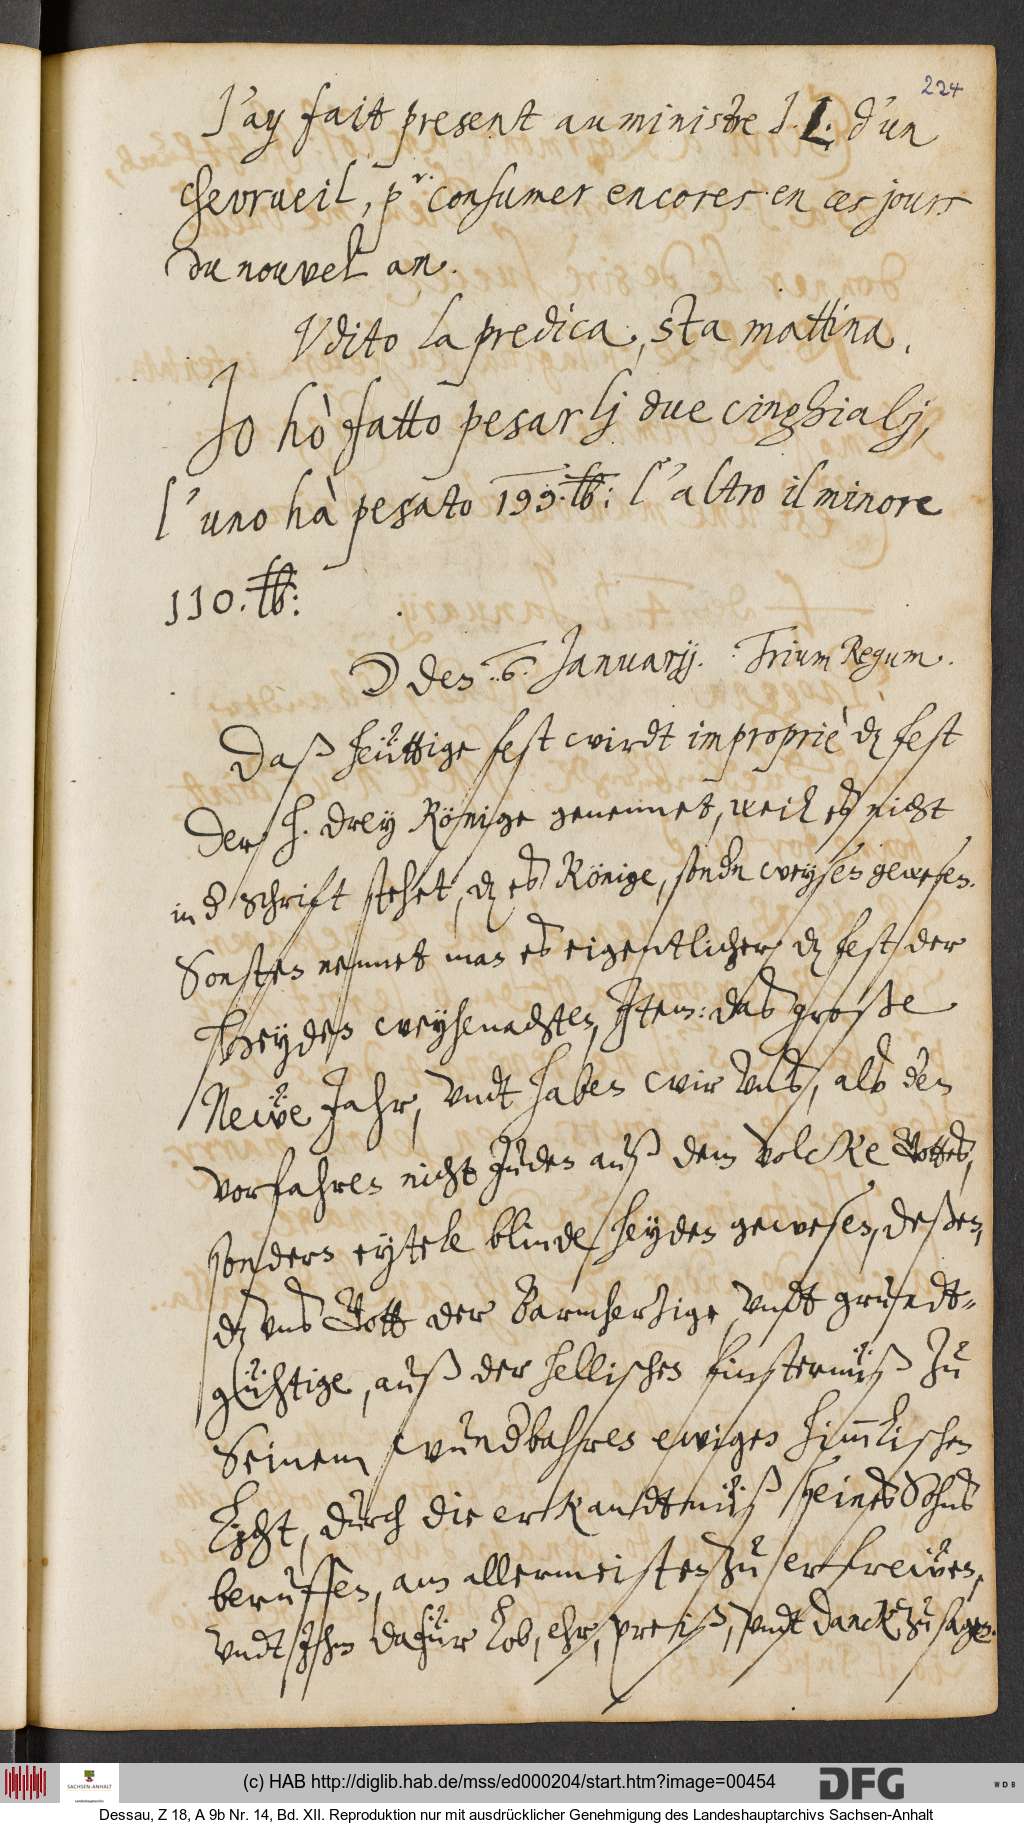 224
J'ay fait present au ministre J. L. d'un
chevrueil, pr. consumer encores en ces jours
du nouvel an.
Vdito la predica, sta mattina.
Io hò fatto pesar lj due cinghialj,
l'uno hà pesato 199. ℔: l'altro il minore
110. ℔:
☽ den .6. Januarij. Trium Regum.
Daß heüttige fest wirdt impropriè dz fest
der h. drey Könige genennet, weil es nicht
in d schrift stehet, dz es Könige, sondn weysen gewesen.
Sonsten nennet man es eigentlicher dz fest der
Heyden weyhenachten, Item: das große
Neẅe Jahr, undt haben wir uns, als den
vorfahren nicht Juden auß dem volcke Gottes,
sondern eytele blinde heyden gewesen, deßen,
dz uns Gott der Barmhertzige undt grundt-
gühtige, auß der hellischen finsternüß zu
Seinem wundbahren ewigen him̅lischen
Licht, durch die erkandtnüß seines Sohns
beruffen, am allermeisten zu erfreẅen,
undt Ihm dafür Lob, ehr, preiß, undt danck zu sagen.
(c) HAB http://diglib.hab.de/mss/ed000204/start.htm?image=00454
SACHSEN-ANHALT
DFG
WDB
Dessau, Z 18, A 9b Nr. 14, Bd. XII. Reproduktion nur mit ausdrücklicher Genehmigung des Landeshauptarchivs Sachsen-Anhalt